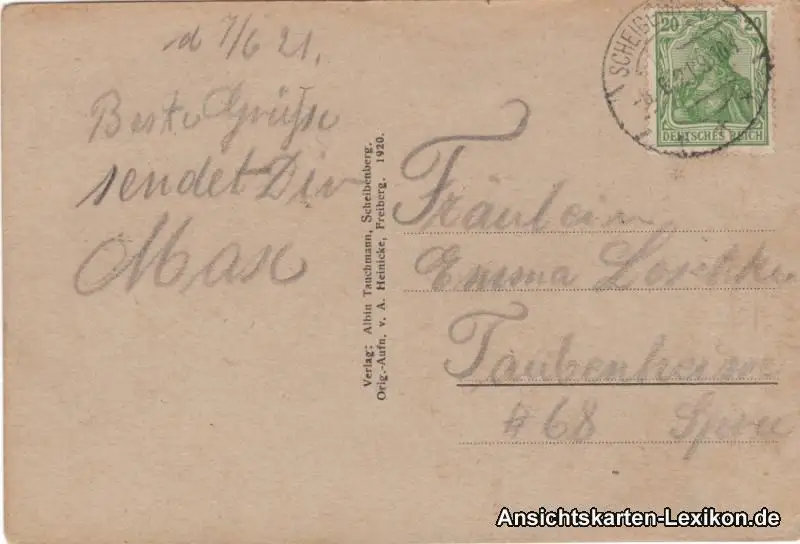 d 7/6 21.
Beste Grüße
sendet Dir
Max
Verlag: Albin Tauchmann, Scheibenberg.
Orig.-Aufn. v. A. Heinicke, Freiberg. 1920.
20 20
DEUTSCHES REICH
Fräulein
Emma
Taubenheim
# 68 Spree
Ansichtskarten-Lexikon.de